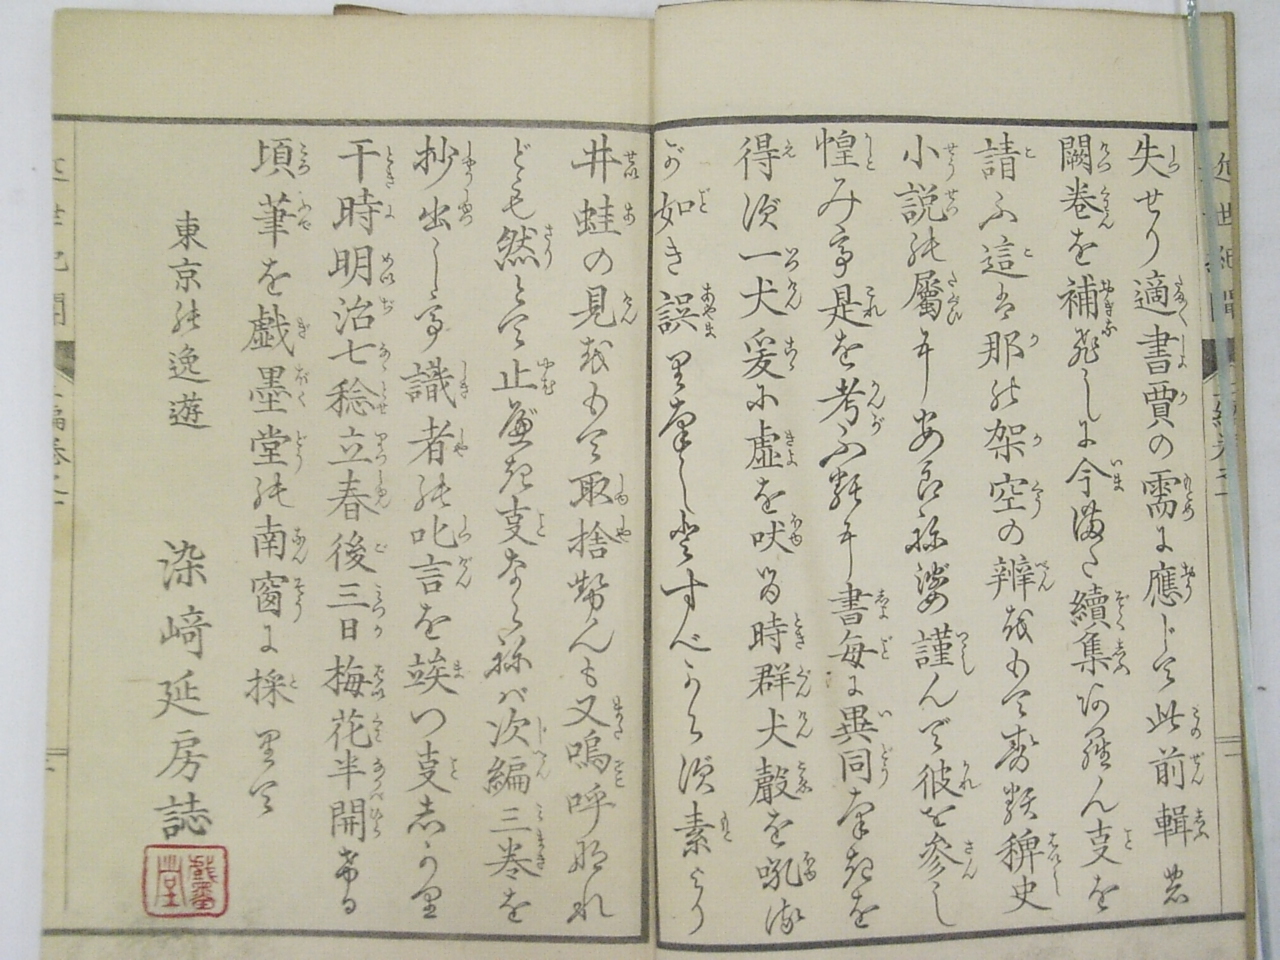 失せり適書賈の需に應じて此前輯の
闕巻を補ひしに今満た續集あらん支を
請ふ這は那の架空の辨をもて数種稗史
小説の屬に安らねば謹んで彼を參し
惶みて是を考ふ類に書毎に異同なきを
得ず一犬爰に虚を吠る時群犬聲を吼る
が如き誤りなしとすべからず素より
井蛙の見をもて取捨せんも又嗚呼なれ
ども然とて止べき支ならねば次編三巻を
抄出して識者の叱言を竢つ支しかり
干時明治七稔立春後三日梅花半開ける
頃筆を戯墨堂の南窗に採りて
東京の逸遊
染﨑延房誌
戲墨堂
近世紀聞